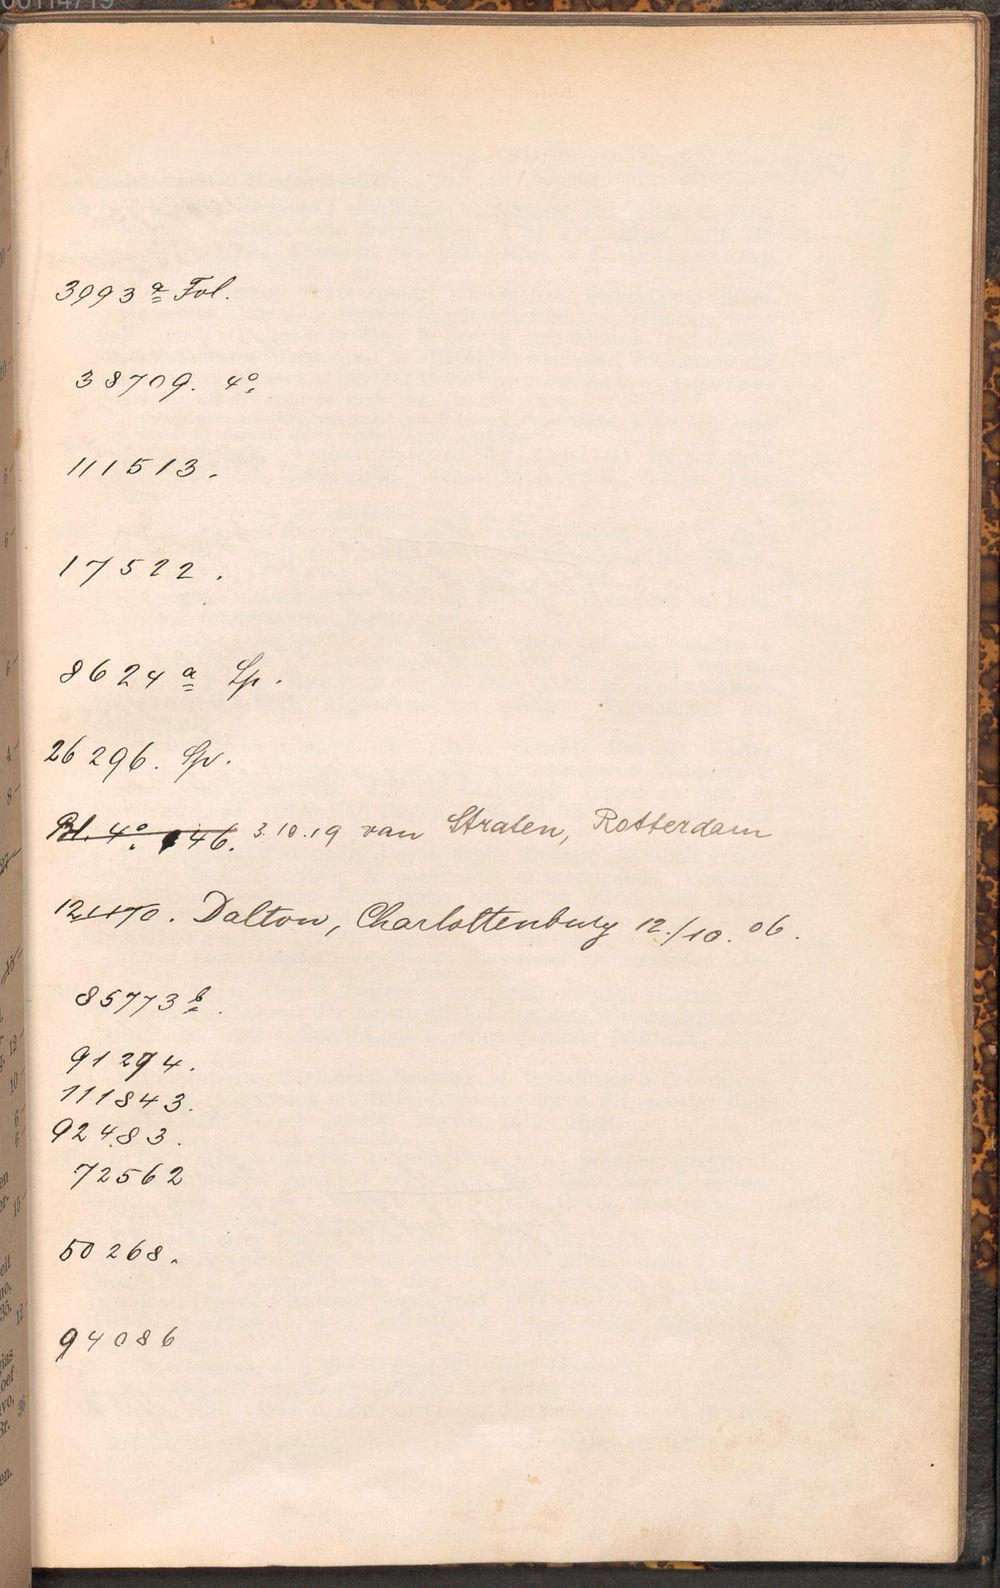 3993 a Fol.
38709. 4o.
111513.
17522.
8624 a Sp.
26296. Sp.
Bl. 4o. 146. 3.10.19 van Straten, Rotterdam
Dalton, Charlottenburg 12./10. 06.
85773 b.
91294.
111843.
92483.
72562
50268.
94086